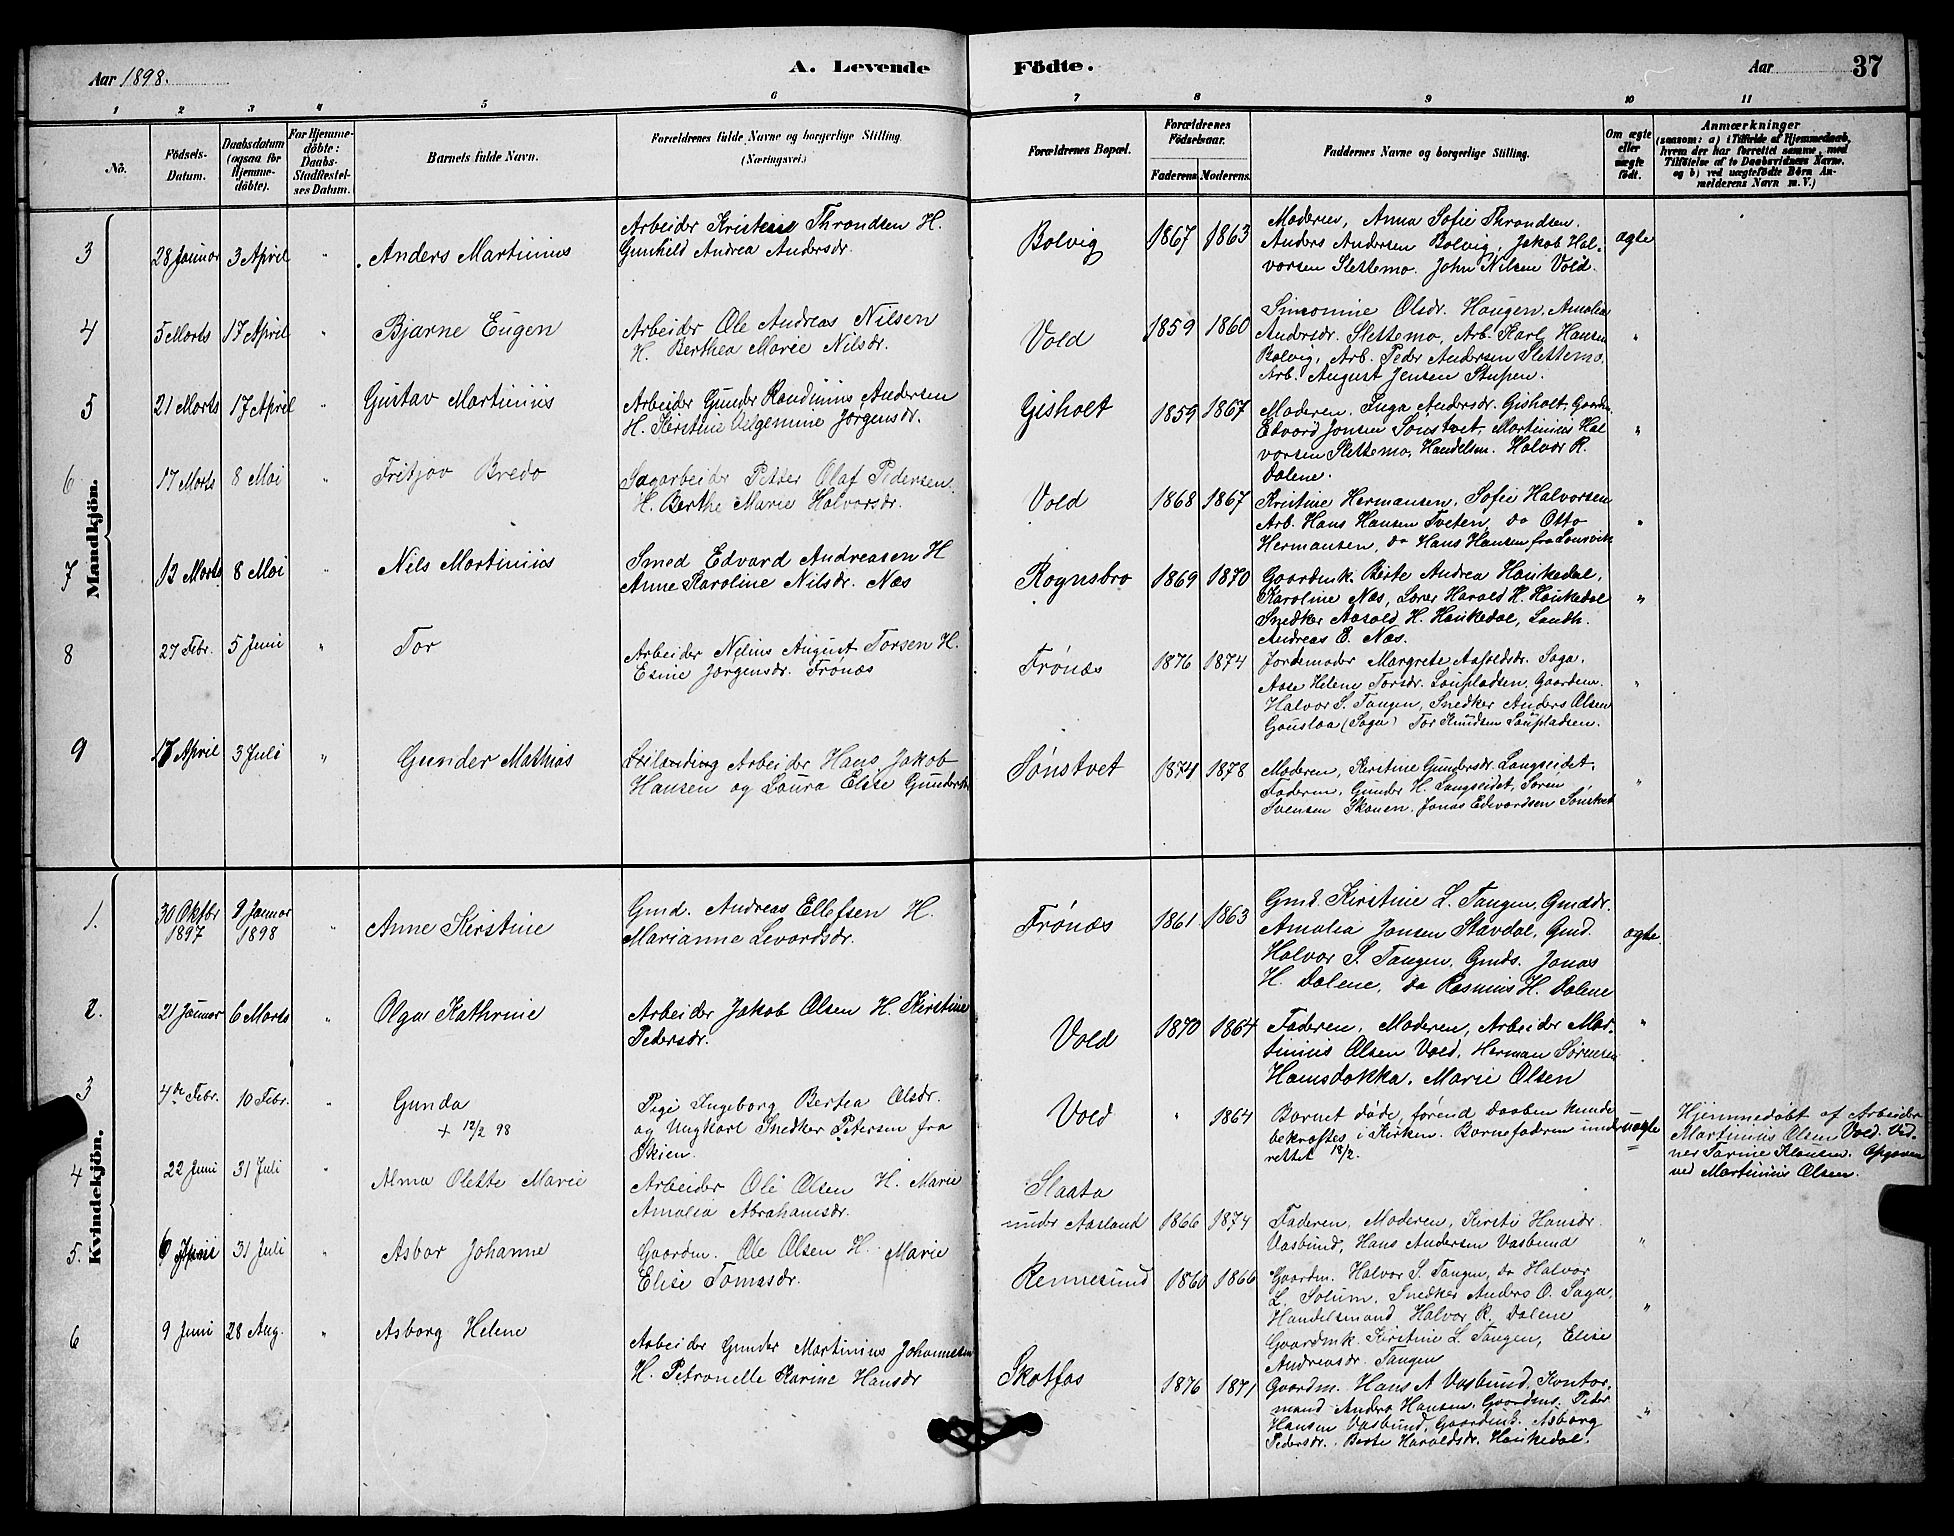 Aar 1898.
A. Levende Födte.
Aar 37
1 2 3 4 5 6 7 8 9 10 11
No.
Födsels-Datum.
Daabsdatum (ogsaa för Hjemme-döbte).
For Hjemme-döbte: Daabs-Stadfæstel-ses Datum.
Barnets fulde Navn.
Forældrenes fulde Navne og borgerlige Stilling.
(Næringsvei.)
Forældrenes Bopæl.
Forældrenes Födselsaar.
Faderens. Moderens.
Faddernes Navne og borgerlige Stilling.
Om ægte eller uægte födt.
Anmærkninger
(saasom: a) i Tilfælde af Hjemmedaab,
hvem der har forrettet samme, med
Tilföielse af to Daabsvidners Navne.
og b) ved uægtefödte Börn An-
melderens Navn m. V.)
Mandkjön.
3 28 Januar 3 April " Anders Martinius
Arbeider Kristen Throndsen H.
Gunhild Andrea Andersdr.
Bolvig 1867 1863
Moderen, Anna Sofie Throndsen.
Anders Andersen Bolvig, Jakob Hal-
vorsen Slettemo. John Nilsen Vold.
ægte
4 5 Marts 17 April " Bjarne Eugen
Arbeider Ole Andreas Nilsen
H. Berthea Marie Nilsdr.
Vold 1859 1860
Simonine Olsdr. Haugen, Amalia
Andersdr. Slettemo, Arb. Karl Hansen
Bolvig, Arb. Peder Andersen Slettemo.
Arb. August Jensen Stupen.
"
5 21 Marts 17 April " Gustav Martinius
Arbeider Gunder Randinius Andersen
H. Kirstine Jörgensdr.
Gisholt 1859 1867
Moderen. Inga Andersdr. Gisholt, Gaardm.
Edvard Jonsen Sönstvet, Martinius Hal
vorsen Slettemo, Handelsm. Halvor R.
Dalene.
"
6 17 Marts 8 Mai " Fritjov Bredo
Sagarbeider Petter Olaf Pedersen.
H. Berthe Marie Halvorsdr.
Vold 1868 1867
Kristine Hermansen, Sofie Halvorsen
Arb. Hans Hansen Tveten, do Otto
Hermansen, do Hans Hansen fra
"
7 13 Marts 8 Mai " Nils Martinius
Smed Edvard Andreasen H
Anne Karoline Nilsdr. Næs
Rognsbro 1869 1870
Gaardmk. Birte Andrea Haukedal,
Karoline Næs, Lærer Harald H. Haukedal
Snedker Aasold H. Haukedal, Landh.
Andreas E. Næs.
"
8 27 Febr. 5 Juni " Tor
Arbeider Nilius August Torsen H.
Esine Jørgensdr. Frönæs
Frönæs 1876 1874
Jordemoder Margrete Aasoldsdr. Saga,
Aase Helene Torsdr. Laupladsen, Gaardm.
Halvor S. Tangen, Snedker Anders Olsen
Gauslaa (Saga) Tor Knudsen Laupladsen.
"
9 17 April 3 Juli " Gunder Mathias
Leilænding Arbeider Hans Jakob
Hansen og Laura Elise Gundersdr.
Sönstvet 1874 1878
Moderen, Kirstine Gundersdr. Langseidet.
Faderen, Gunder H. Langseidet, Sören
Svensen Skauen. Jonas Edvardsen Sönstvet
"
Kvindekjön.
1. 30 Oktbr 1897 9 Januar 1898 " Anne Kirstine
Gmd. Andreas Ellefsen H.
Marianne Levordsdr.
Frönæs 1861 1863
Gmd. Kirstine L. Tangen, Gmddr.
Amalia Jonsen Stavdal, Gmd.
Halvor S. Tangen, Gmds. Jonas
H. Dalene, do Rasmus H. Dalene
ægte
2. 21 Januar 6 Marts " Olga Kathrine
Arbeider Jakob Olsen H. Kirstine
Pedersdr.
Vold 1870 1864
Faderen, Moderen, Arbeider Mar-
tinius Olsen Vold, Herman Sörensen
Hamsdokka. Marie Olsen
"
3 4de Febr. 10 Febr. " Gunda
+ 12/2 98
Pige Ingeborg Bertea Olsdr.
og Ungkarl Snedker Petersen fra
Skien.
Vold " 1864
Barnet döde, förend Daaben kunde
bekræftes i Kirken. Barnefaderen under-
rettet 18/2.
uægte
Hjemmedöbt af Arbeider
Martinius Olsen Vold. Vid-
ner Tarine Klausen. Opgaven
ved Martinius Olsen.
4 22 Juni 31 Juli " Alma Olette Marie
Arbeider Ole Olsen H. Marie
Amalia Abrahamsdr.
Slaata
under Aasland 1866 1874
Faderen, Moderen, Kirsti Hansdr.
Vasbund, Hans Andersen Vasbund
"
5. 9 Juni 31 Juli " Asbor Johanne
Gaardm. Ole Olsen H. Marie
Elise Tomasdr.
Rennesund 1860 1866
Gaardm. Halvor S. Tangen, do Halvor
L. Solum, Snedker Anders O. Saga,
Handelsmand Halvor R. Dalene
Gaardmk. Kirstine L. Tangen, Elise
Andreasdr. Tangen
"
6 9 Juni 28 Aug. " Asborg Helene
Arbeider Gunder Martinius Johannesen
H. Petronelle Karine Hansdr
Skotfos 1876 1871
Gaardm. Hans A Vasbund, Kontor-
mand Andro Hansen, Gaardms. Peder
Hansen Vasbund, Gaardmk. Asborg
Pedersdr., Berte Haraldsdr. Haukedal.
"